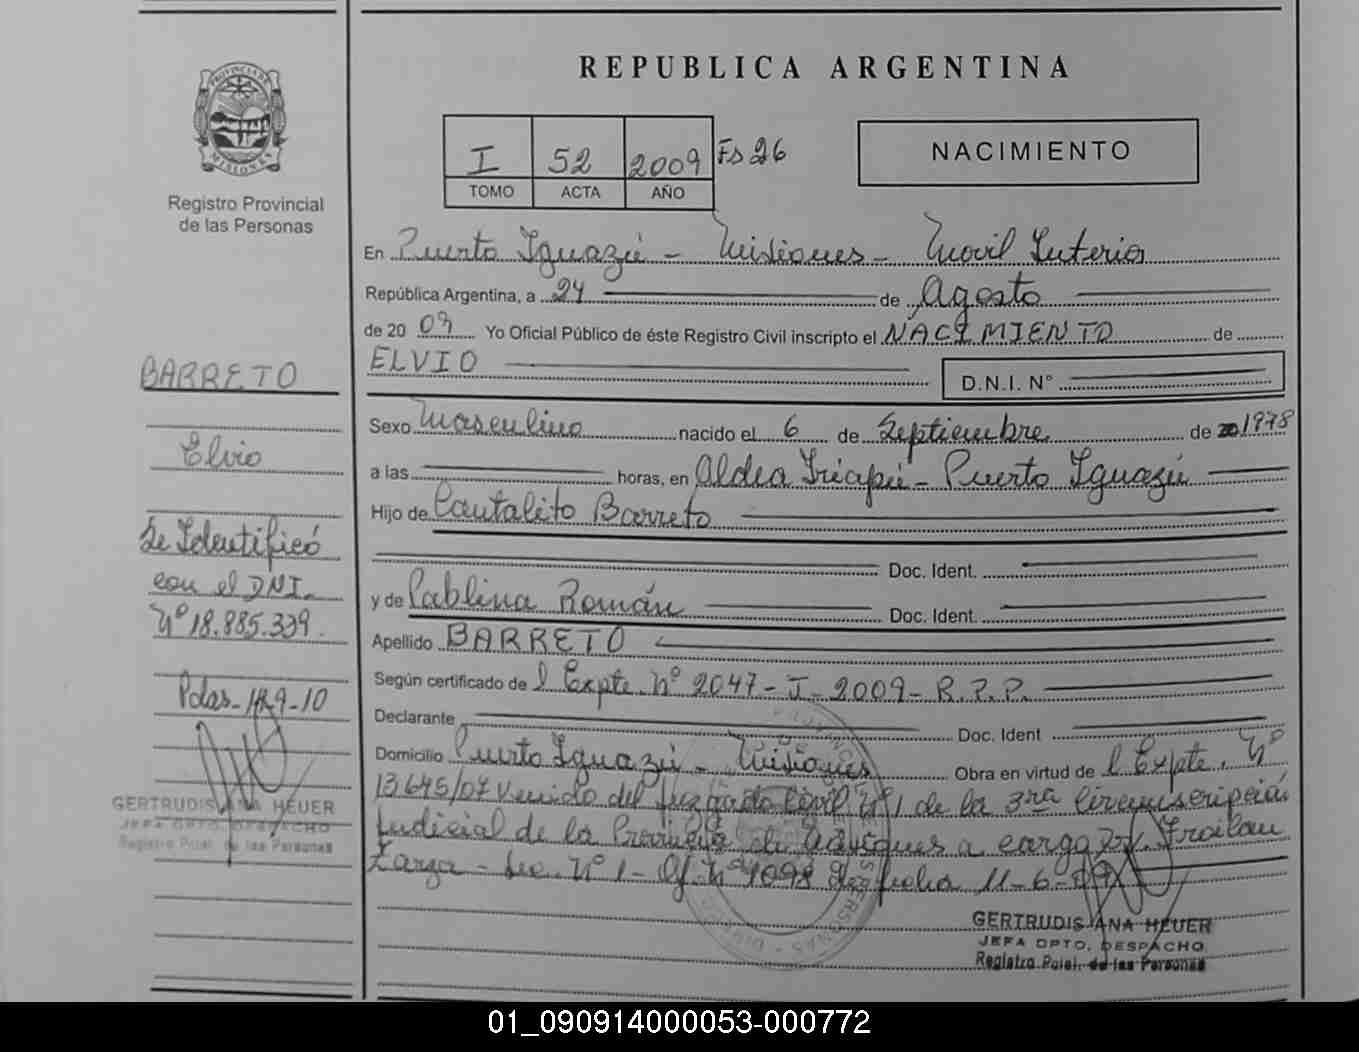 REPUBLICA ARGENTINA
PROVINCIA DE MISIONES
Registro Provincial
de las Personas
I 52 2009 Fs 26
TOMO ACTA AÑO
NACIMIENTO
En Puerto Iguazú - Misiones - Movil Interior
República Argentina, a 24 de Agosto
de 20 09 Yo Oficial Público de éste Registro Civil inscripto el NACIMIENTO de
ELVIO
D.N.I. N°
Sexo Masculino nacido el 6 de Septiembre de 20 1978
a las horas, en Aldea Iriapú - Puerto Iguazú
Hijo de Cantalito Barreto
Doc. Ident.
y de Pablina Román Doc. Ident.
Apellido BARRETO
Según certificado de l Expte. Nº 2047 - I - 2009 - R.P.P.
Declarante Doc. Ident
Domicilio Puerto Iguazú - Misiones Obra en virtud de l Expte. Nº
13645/07 Venido del Juzgado Civil Nº 1 de la 3ra Circunscripción
Judicial de la Provincia de Misiones a cargo Dr. Froilan
Zarza - Sec. Nº 1 - Of. Nº 1098 de fecha 11-6-09
GERTRUDIS ANA HEUER
JEFA DPTO. DESPACHO
Registro Pcial. de las Personas
BARRETO
Elvio
Se Identificó
con el DNI.
Nº 18.885.339.
Pdas-
9-10
GERTRUDIS ANA HEUER
JEFA DPTO. DESPACHO
Registro Pcial. de las Personas
01_090914000053-000772